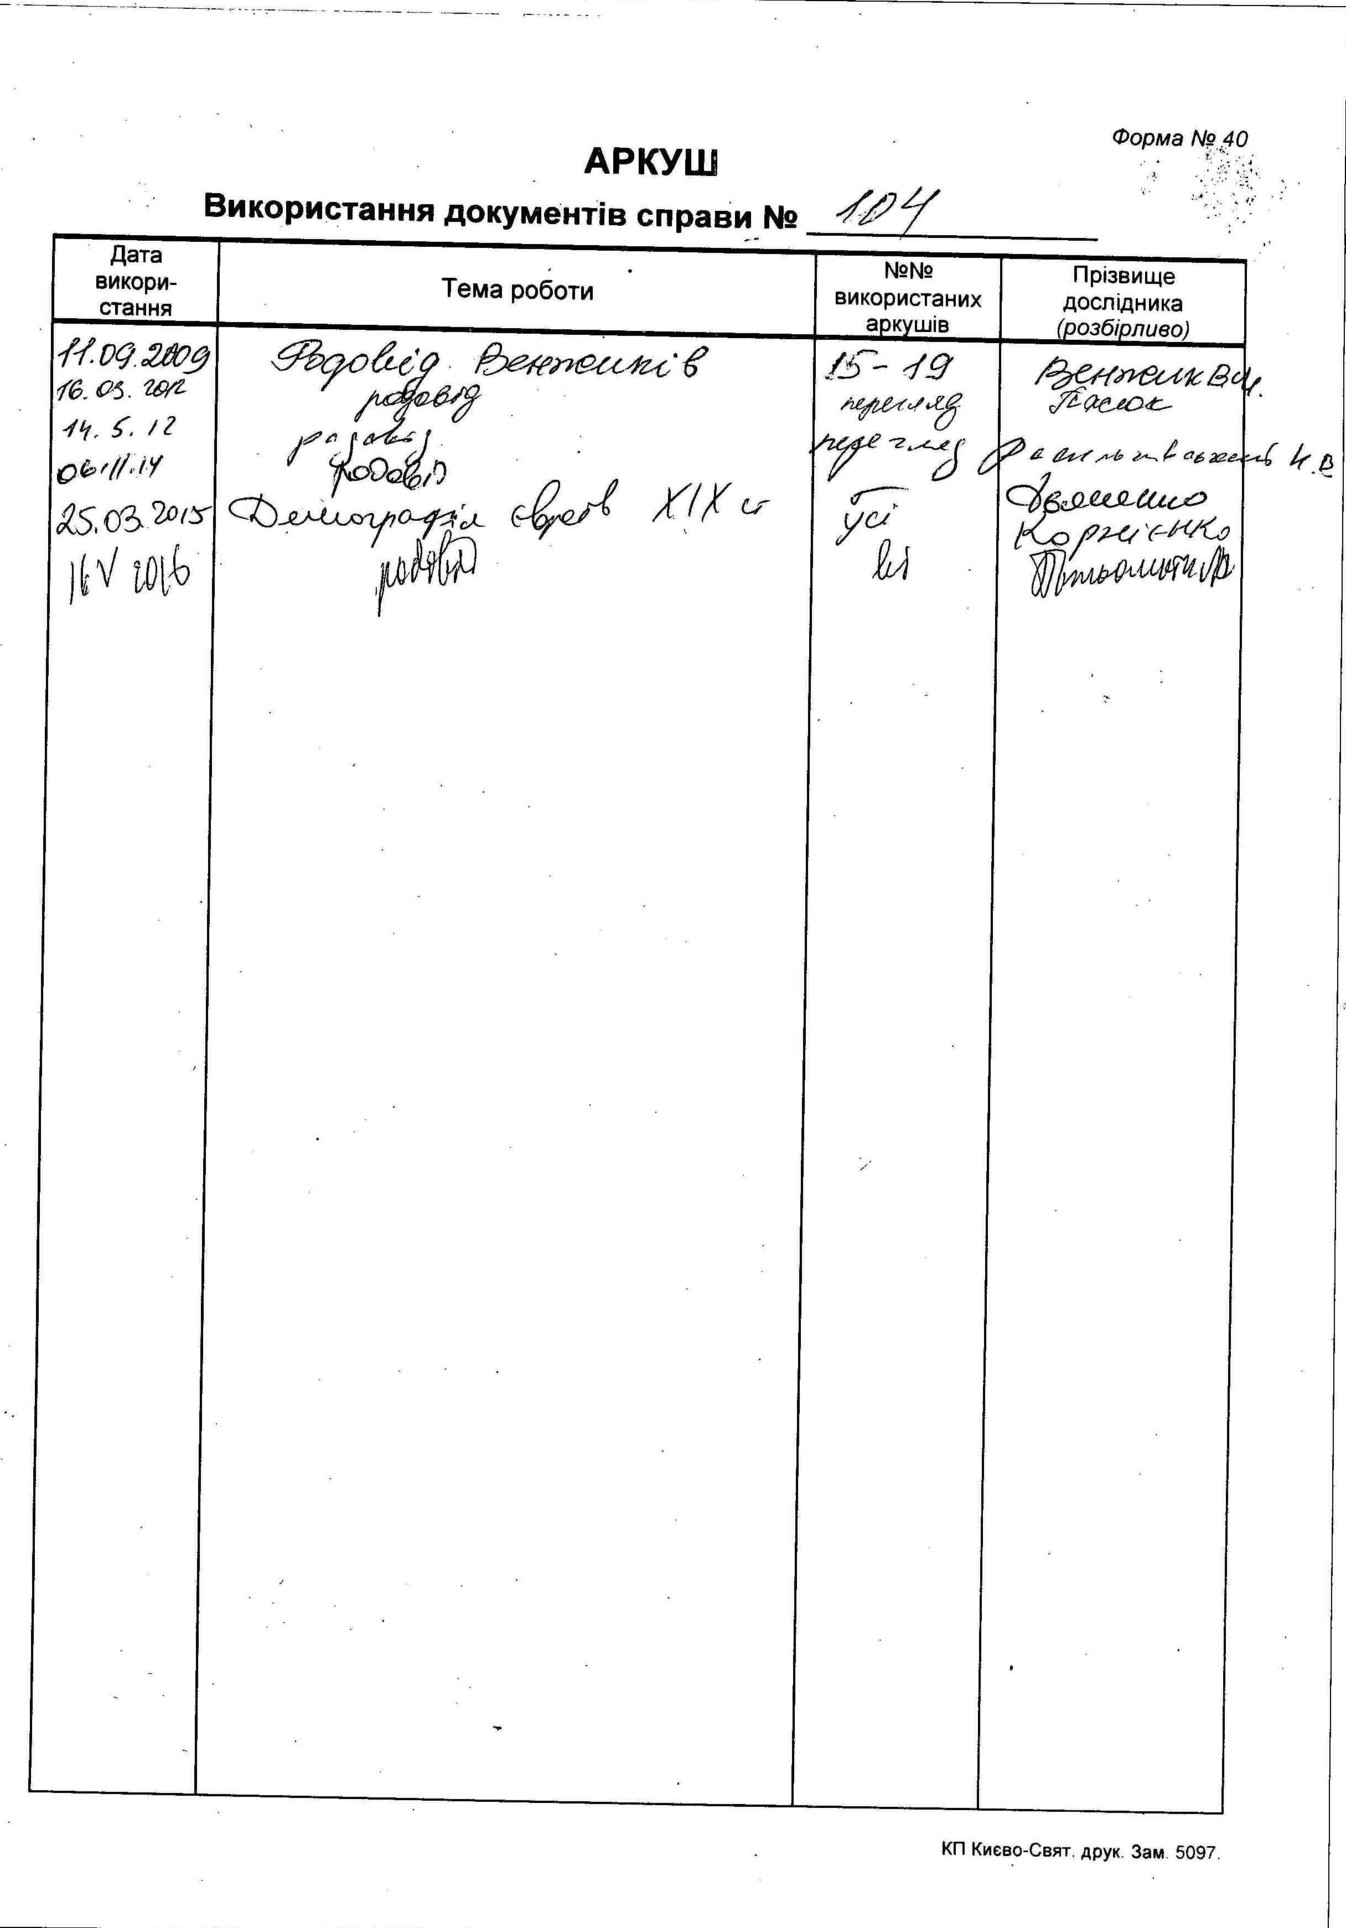 Форма № 40
АРКУШ
Використання документів справи № 104
Дата використання
Тема роботи
№№ використаних аркушів
Прізвище дослідника (розбірливо)
11.09.2009 Родовід Венжиків 15-19 Венжик В.И.
16.03.2012 родовід перегляд Пасюк
14.5.12 родовід перегляд И.В
06.11.14 родовід
25.03.2015 Демографія євреїв XIX ст Усі Корнієнко
16 V 2016 родовід всі
КП Києво-Свят. друк. Зам. 5097.